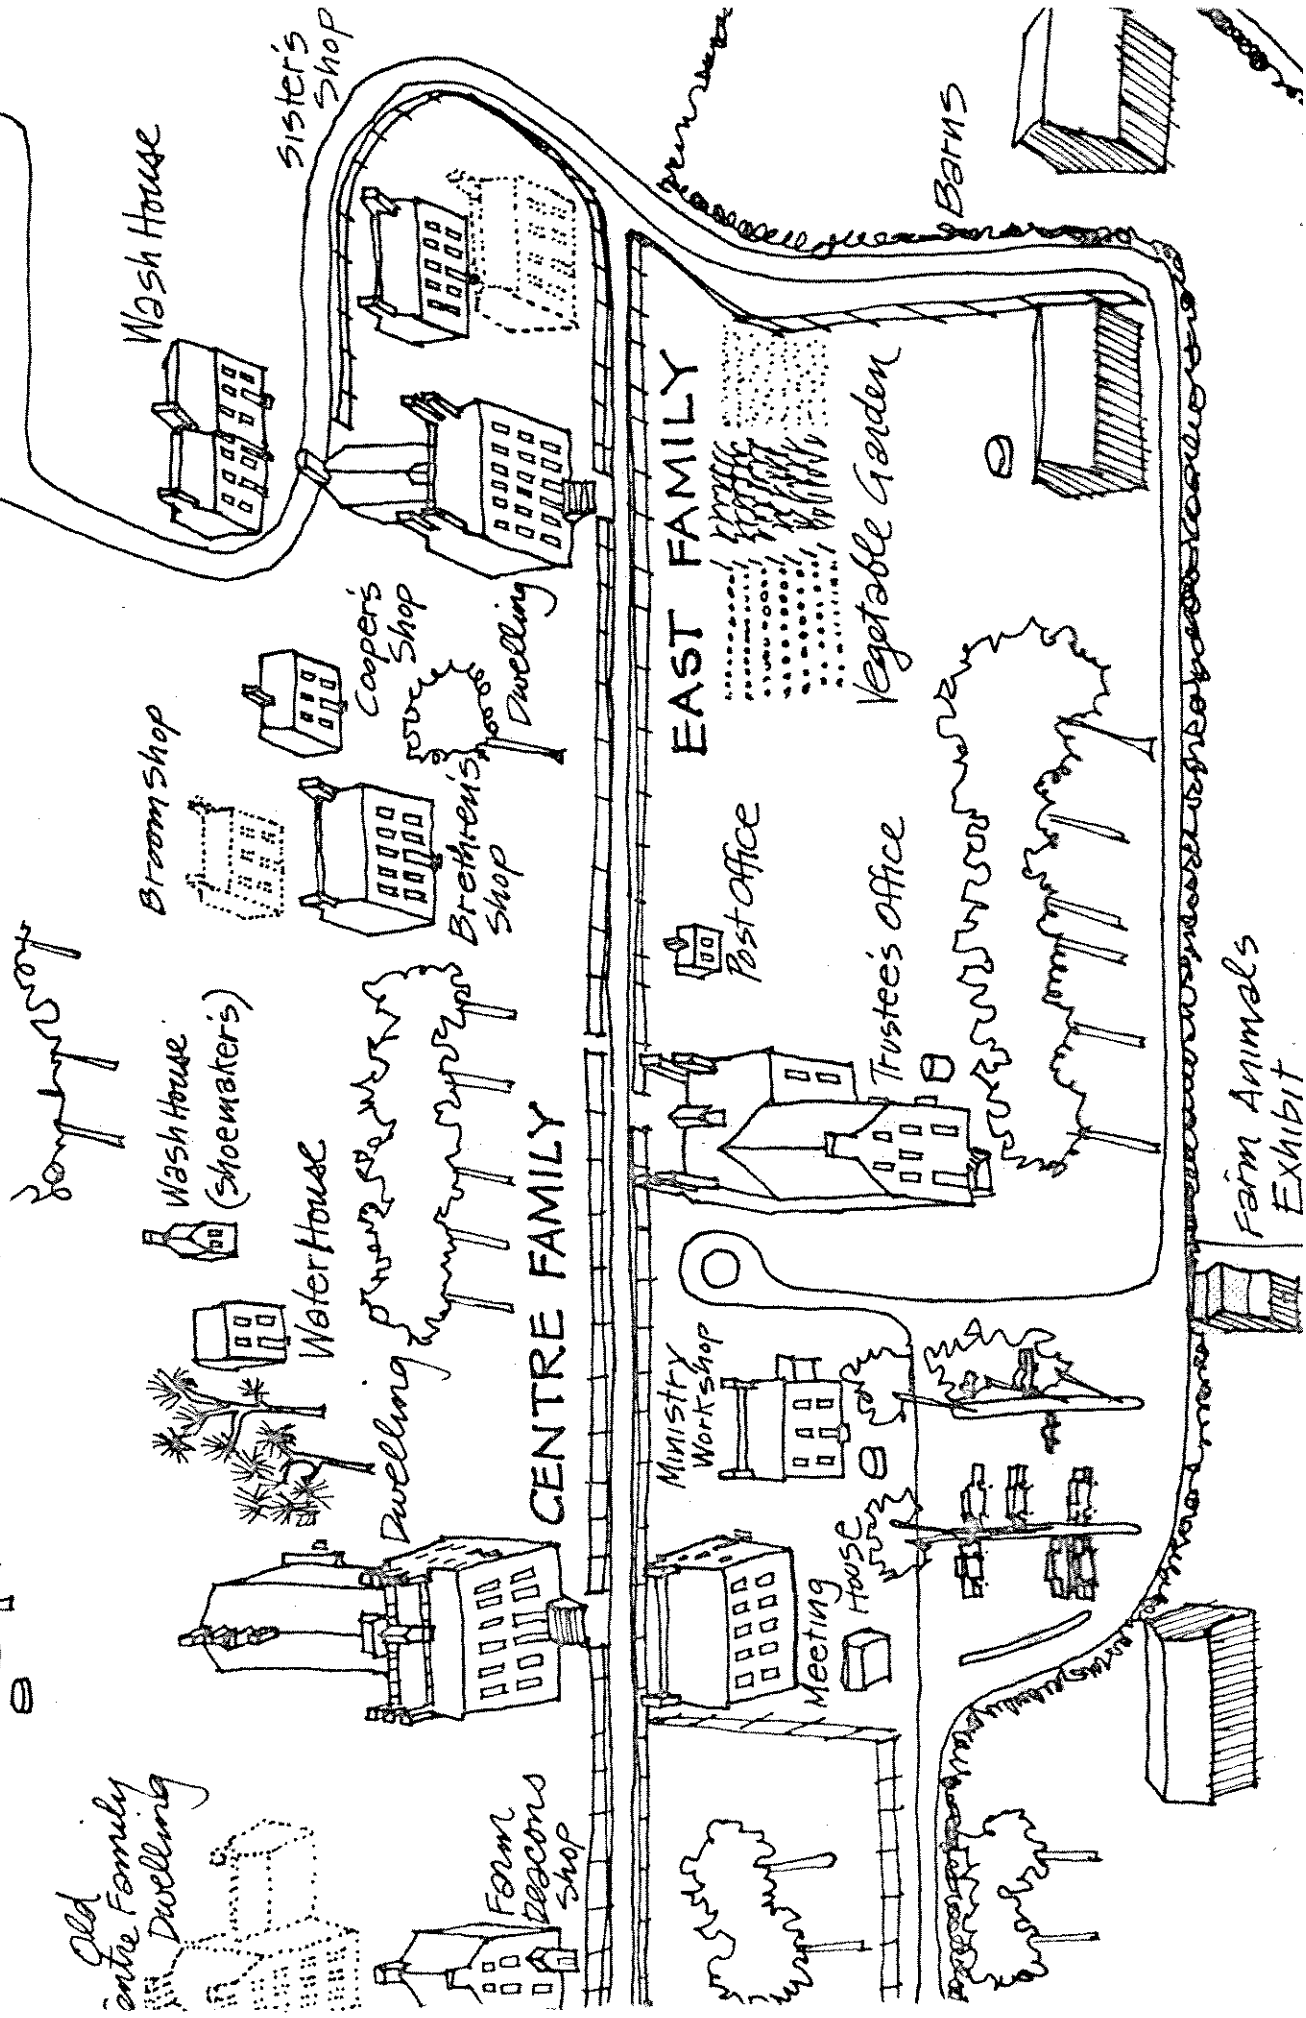 Old
entre Family
Dwelling
Farm
Deacons
Shop
Dwelling
CENTRE FAMILY
Water House
Wash House
(Shoemaker's)
Broom Shop
Brethren's
Shop
Cooper's
Shop
Dwelling
Wash House
Sister's
Shop
Meeting
House
Ministry
Workshop
Trustee's Office
Post Office
EAST FAMILY
Vegetable Garden
Barns
Farm Animals
Exhibit